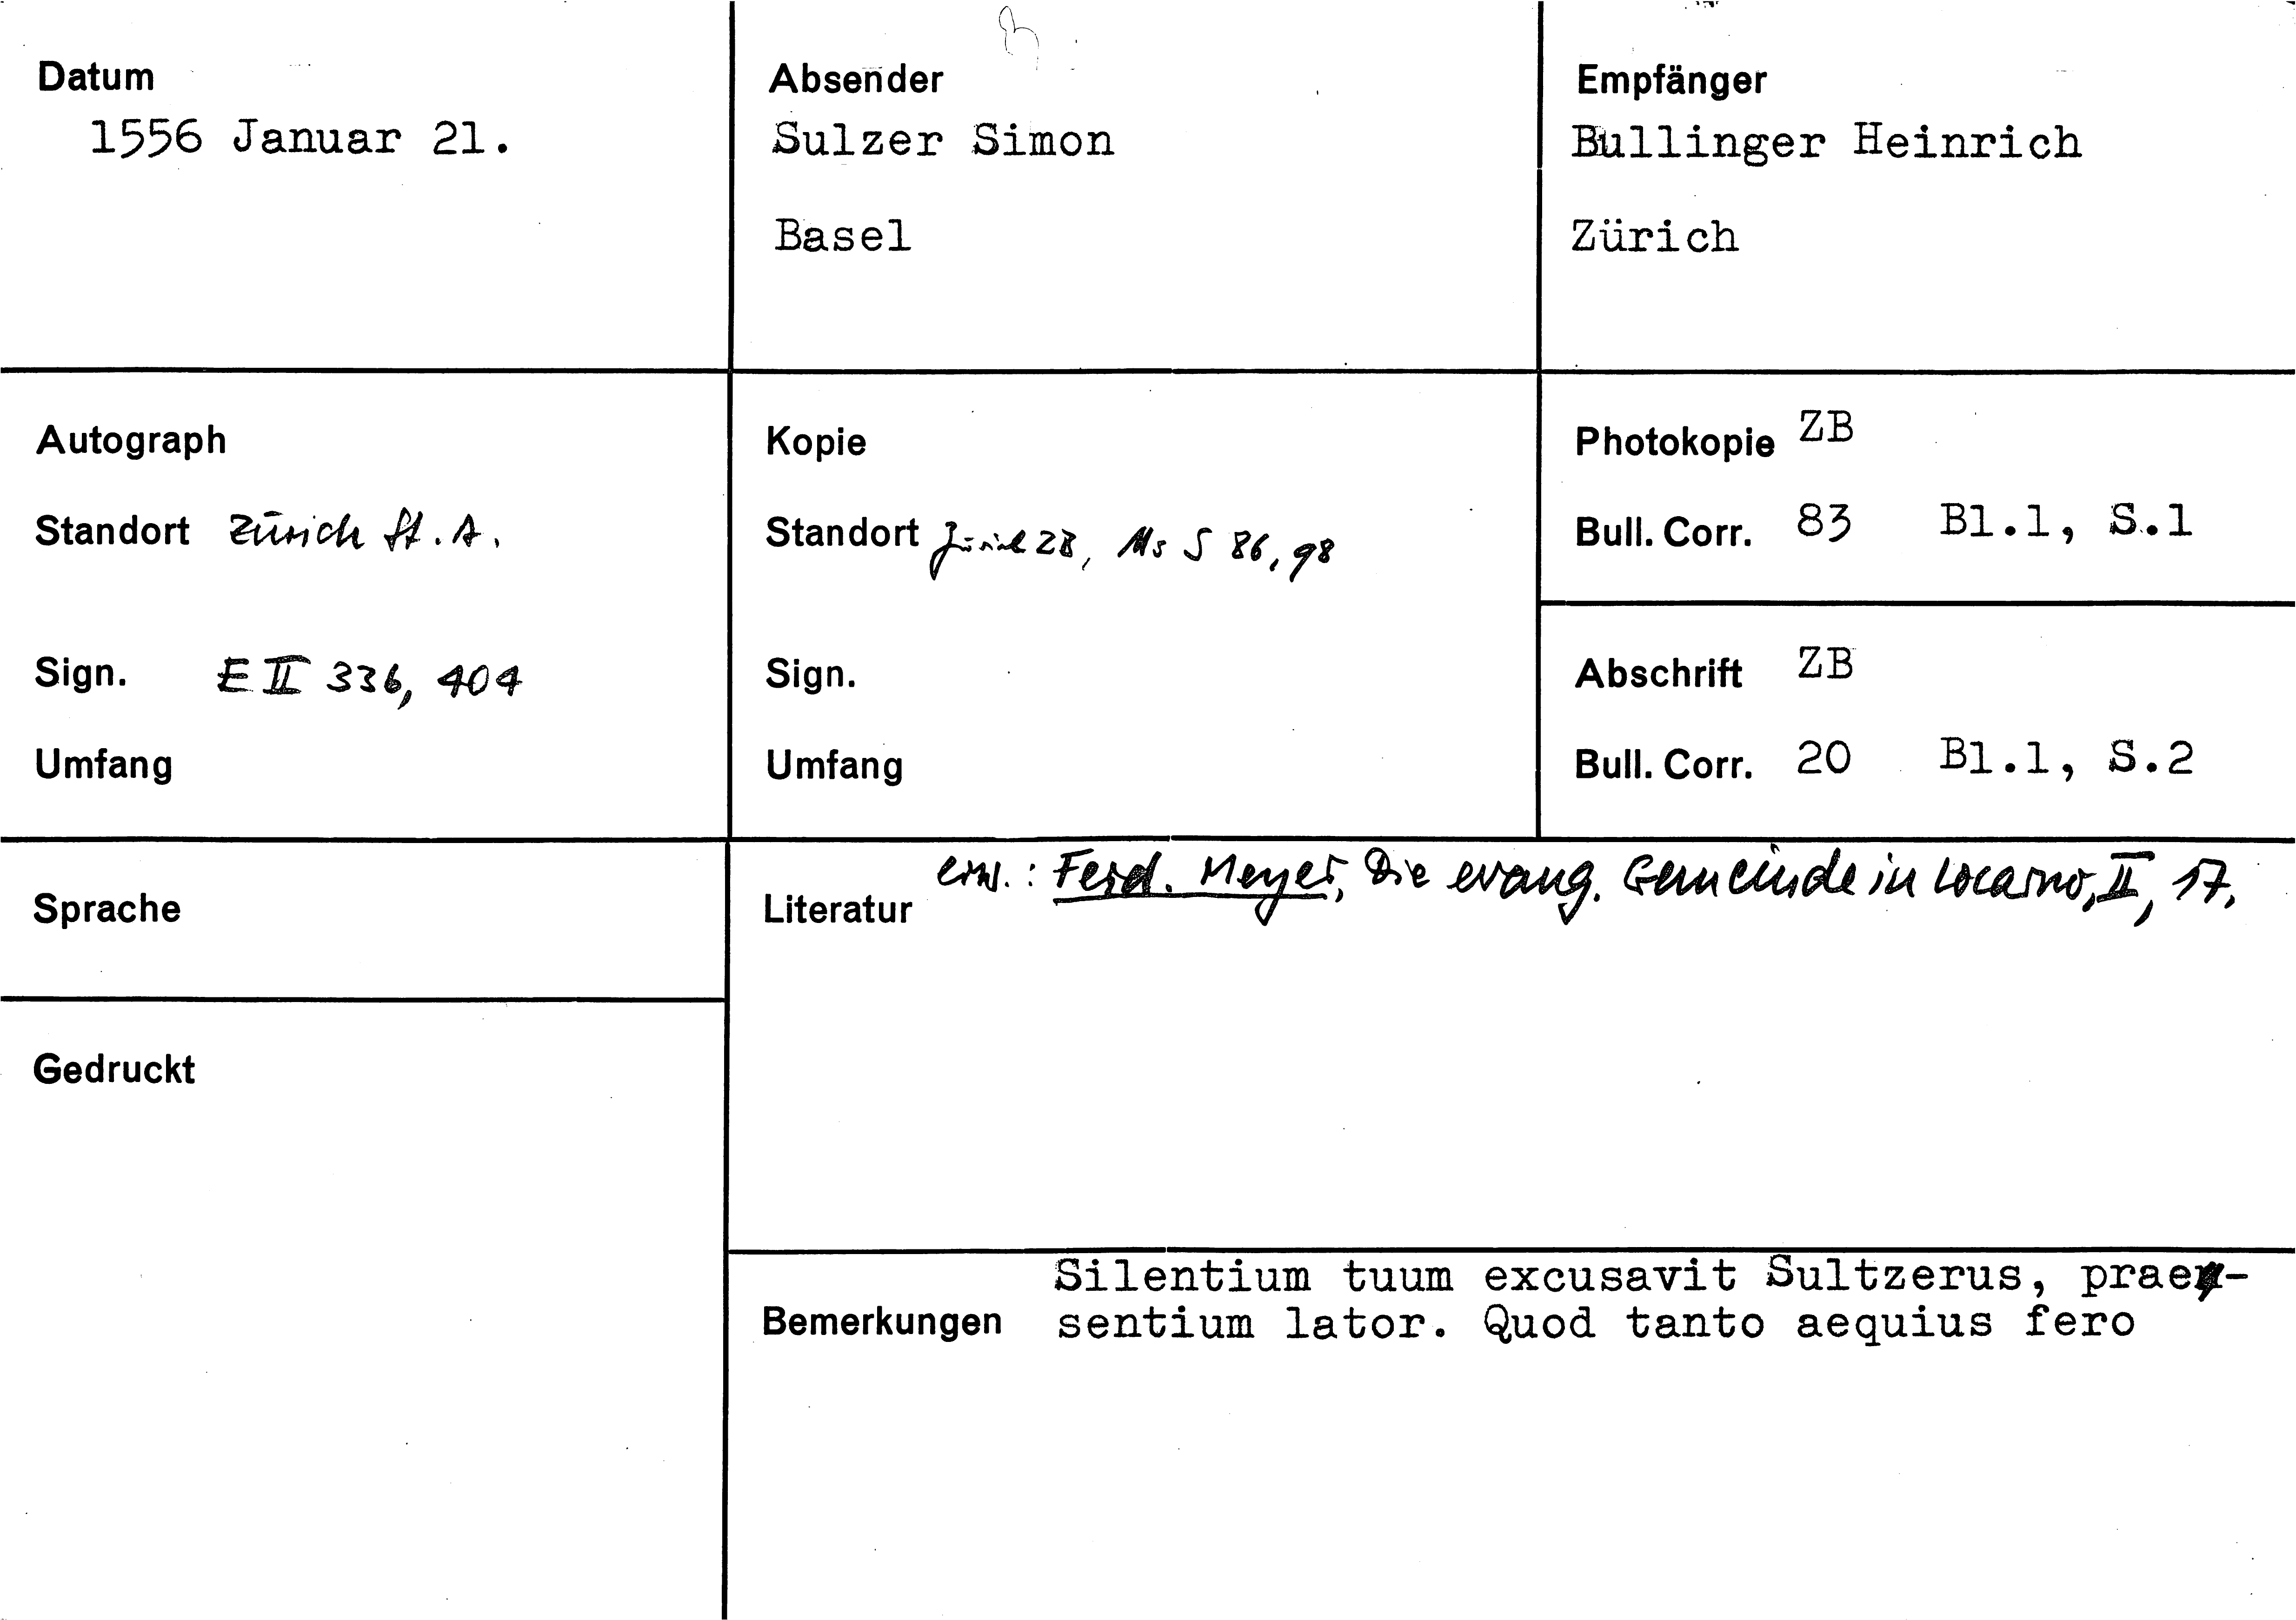 Datum
1556 Januar 21.
Absender
Sulzer Simon
Basel
Empfänger
Bullinger Heinrich
Zürich
Autograph
Standort Zürich St. A.
Sign. E II 336, 404
Umfang
Kopie
Standort Zürich ZB, Ms S 86, 98
Sign.
Umfang
Photokopie ZB
Bull. Corr. 83 Bl.1, S.1
Abschrift ZB
Bull. Corr. 20 Bl.1, S.2
Sprache
Gedruckt
Literatur erw.: Ferd. Meyer, Die evang. Gemeinde in Locarno, II, 17.
Bemerkungen
Silentium tuum excusavit Sultzerus, prae-
sentium lator. Quod tanto aequius fero